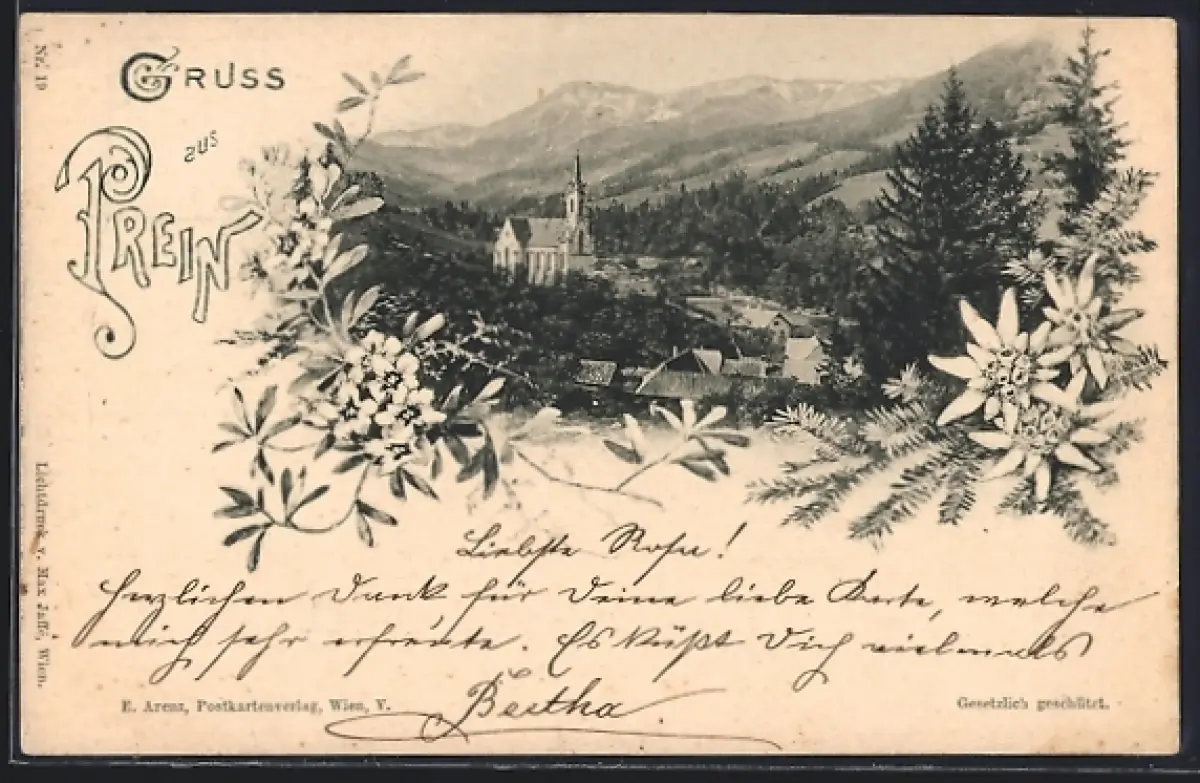 Nr. 19
GRUSS
aus
PREIN
Liebste Rosa!
Herzlichen Dank für Deine liebe Karte, welche
mich sehr erfreute. Es küßt Dich vielmals
Bertha.
E. Arenz, Postkartenverlag, Wien, V.
Gesetzlich geschützt.
Lichtdruck v. Max Jaffé, Wien.